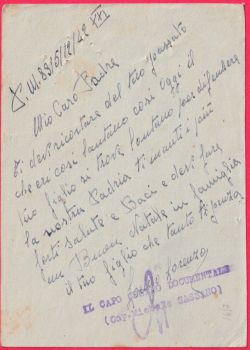 P.M. 3315/12/42 XXI
Mio Caro Padre
Ti devi ricordare del tuo passato
che eri cosi lontano cosi oggi il
tuo figlio si trova lontano per difendere
la nostra Patria ti manti i piú
forti salute e Baci e devi fare
un Buon Natale in famiglia
il tuo figlio che tanto ti penza
Lorenzo
IL CAPO DOCUMENTALE